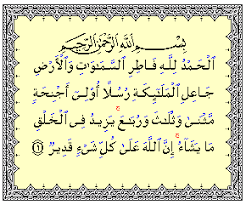 بِسْمِ ٱللَّهِ ٱلرَّحْمَٰنِ ٱلرَّحِيمِ
ٱلْحَمْدُ لِلَّهِ فَاطِرِ ٱلسَّمَٰوَٰتِ وَٱلْأَرْضِ
جَاعِلِ ٱلْمَلَٰٓئِكَةِ رُسُلًا أُو۟لِىٓ أَجْنِحَةٍ
مَّثْنَىٰ وَثُلَٰثَ وَرُبَٰعَ ۚ يَزِيدُ فِى ٱلْخَلْقِ
مَا يَشَآءُ ۚ إِنَّ ٱللَّهَ عَلَىٰ كُلِّ شَىْءٍ قَدِيرٌ ١